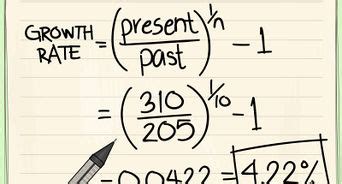 GROWTH RATE = (present/past)^1/n - 1
= (310/205)^1/10 - 1
= 0.0422 = 4.22%